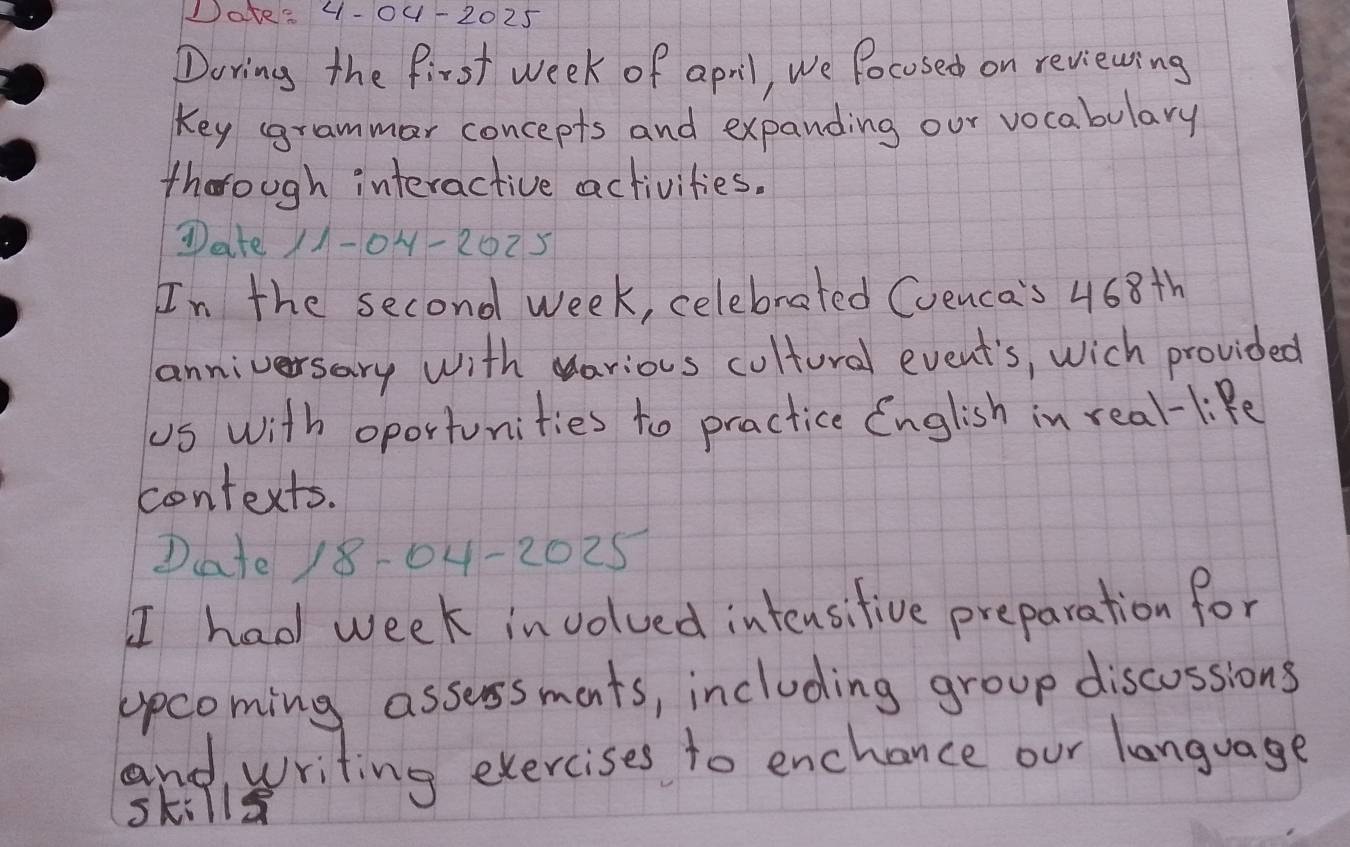 Date: 4-04-2025
During the first week of april, we focused on reviewing
Key grammar concepts and expanding our vocabulary
thorough interactive activities.
Date 11-04-2025
In the second week, celebrated Cuenca's 468th
anniversary with various cultural event's, wich provided
us with oportunities to practice English in real-life
contexts.
Date 18-04-2025
I had week involved intensitive preparation for
upcoming assessments, including group discussions
and writing exercises to enchance our language
skills